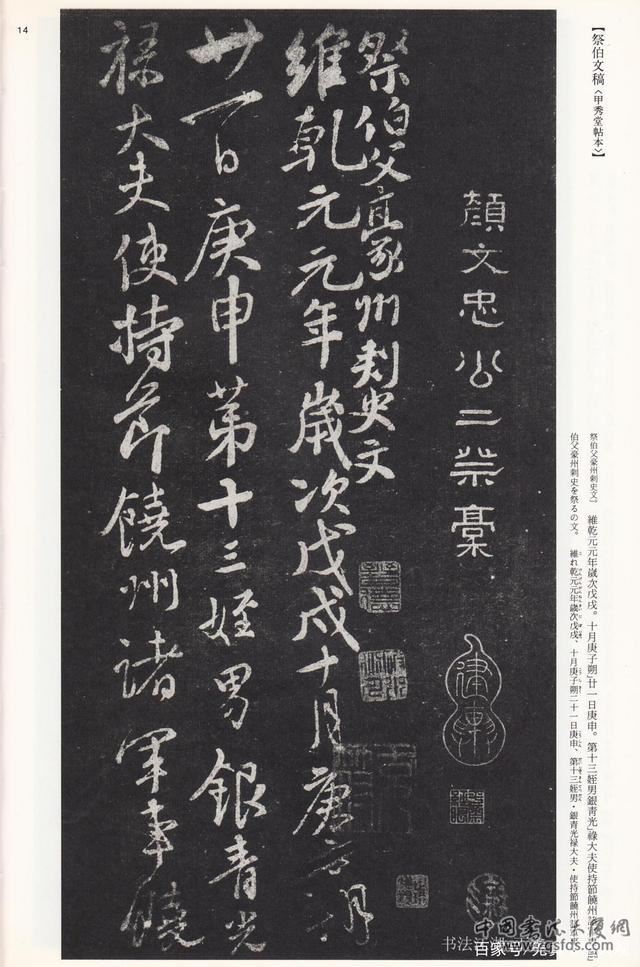 14
【祭伯文稿〈甲秀堂帖本〉】
顔文忠公二祭稾
祭伯父豪州刺史文
維乾元元年歲次戊戌十月庚子朔
廿一日庚申第十三姪男銀青光
祿大夫使持節饒州諸軍事饒
祭伯父豪州刺史文』 維乾元元年歲次戊戌。十月庚子朔』廿一日庚申。第十三姪男銀青光』祿大夫使持節饒州諸軍事饒』
伯父豪州刺史を祭るの文。 維れ乾元元年歲次戊戌、十月庚子朔二十一日庚申、第十三姪男・銀青光禄大夫・使持節饒州諸軍事
中国书法不瘦网
www.gsfds.com
书法
百家号/